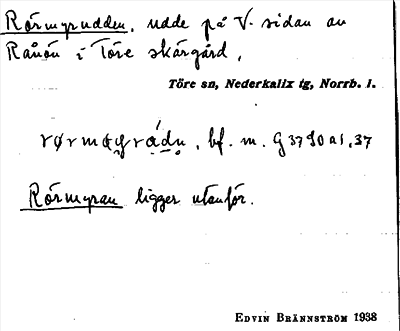 Rörmyrudden, udde på V. sidan av
Rånön i Töre skärgård.
Töre sn, Nederkalix tg, Norrb. l.
bf. m. G 3790 a 1, 37
Rörmyran ligger utanför.
EDVIN BRÄNNSTRÖM 1938